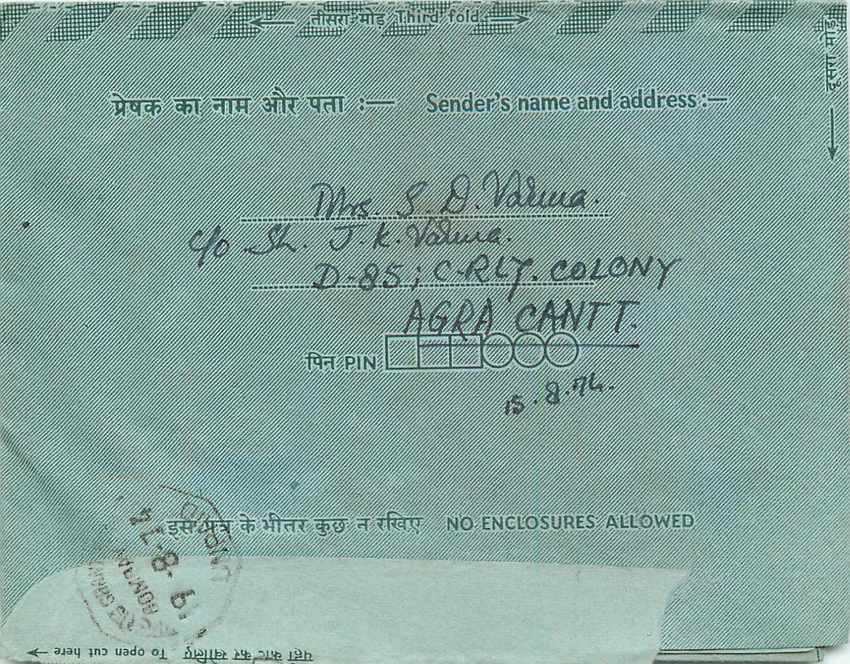 तीसरा मोड़ Third fold
दूसरा मोड़
प्रेषक का नाम और पता :— Sender's name and address:—
Mrs S. D. Varma.
c/o Sh. J. K. Varma.
D-85; C-RLY. COLONY
AGRA CANTT.
पिन PIN
15.8.74.
इस पत्र के भीतर कुछ न रखिए NO ENCLOSURES ALLOWED
19-8-74
यहां काट कर खोलिए To open cut here